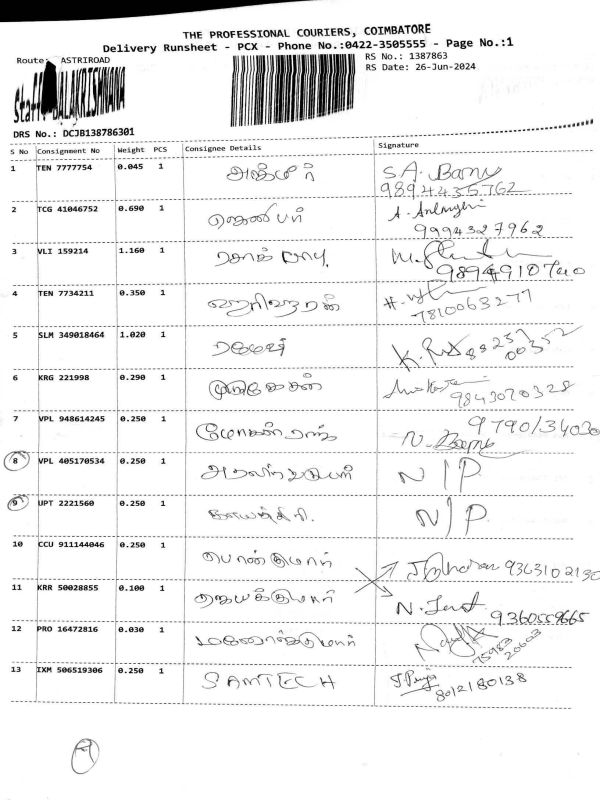 THE PROFESSIONAL COURIERS, COIMBATORE
Delivery Runsheet - PCX - Phone No.:0422-3505555 - Page No.:1
Route: ASTRIROAD
RS No.: 1387863
RS Date: 26-Jun-2024
Staff: BALAKRISHNANA
DRS No.: DCJB138786301
S No Consignment No Weight PCS Consignee Details Signature
1 TEN 7777754 0.045 1 S.A. Banu
9894435762
2 TCG 41046752 0.690 1 ஜெனிபர் A.
9994327962
3 VLI 159214 1.160 1
4 TEN 7734211 0.350 1 ஹரிஹரன் H.
7810063277
5 SLM 349018464 1.020 1 ரமேஷ் K.
6 KRG 221998 0.290 1 முருகேசன்
9843070328
7 VPL 948614245 0.250 1 மோகன்ராஜ் 9790134030
N.
8 VPL 405170534 0.250 1 N/P
9 UPT 2221560 0.250 1 காயத்திரி. N/P
10 CCU 911144046 0.250 1 பொன்குமார் 9363102130
11 KRR 50028855 0.100 1 ஜெயக்குமார் N. 9360559665
12 PRO 16472816 0.030 1 மனோஜ்குமார்
75983
20603
13 IXM 506519306 0.250 1 SAMTECH
8012180138